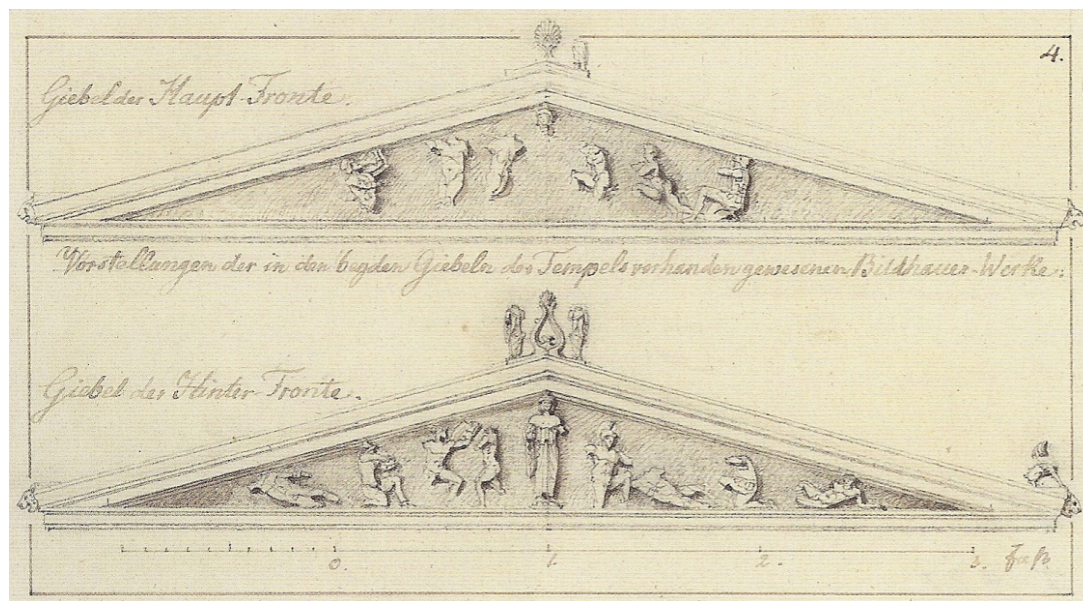 4.
Giebel der Haupt-Fronte.
Vorstellungen der in den beyden Giebeln des Tempels vorhanden gewesenen Bildhauer-Werke.
Giebel der Hinter-Fronte.
0. 1. 2. 3. Fuß